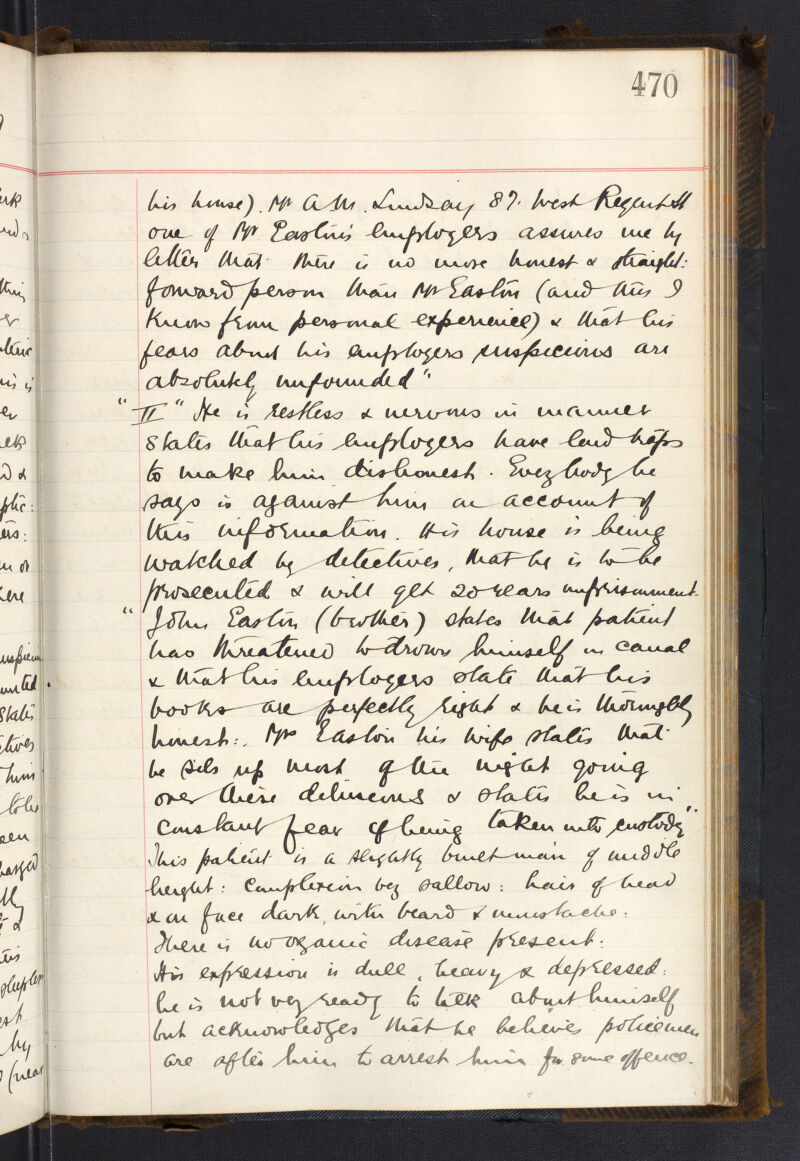 470
his house). Mr A. M. Lindsay 87. West Regent St
one of Mr Easton's employers assures me by
letter that there is no more honest & straight:
forward person than Mr Easton (and this I
know from personal experience) & that his
fears about his employers suspicions are
absolutely unfounded"
"II" He is restless & nervous in manner
States that his employers have laid traps
to make him dishonest. Everybody he
says is against him on account of
this information. His house is being
watched by detectives, that he is to be
prosecuted & will get 20 years imprisonment.
"John Easton (brother) states that patient
has threatened to drown himself in canal
& that his employers state that his
books are perfectly right & he is thoroughly
honest:. Mrs Easton his wife states that
he sits up most of the night going
over these delusions & states he is in
constant fear of being taken into custody"
This patient is a slightly built man of middle
height: complexion very sallow: hair of head
& on face dark, with beard & moustache:
There is no organic disease present:
His expression is dull, heavy & depressed:
he is not very ready to talk about himself
but acknowledges that he believes policemen
are after him to arrest him for some offence.